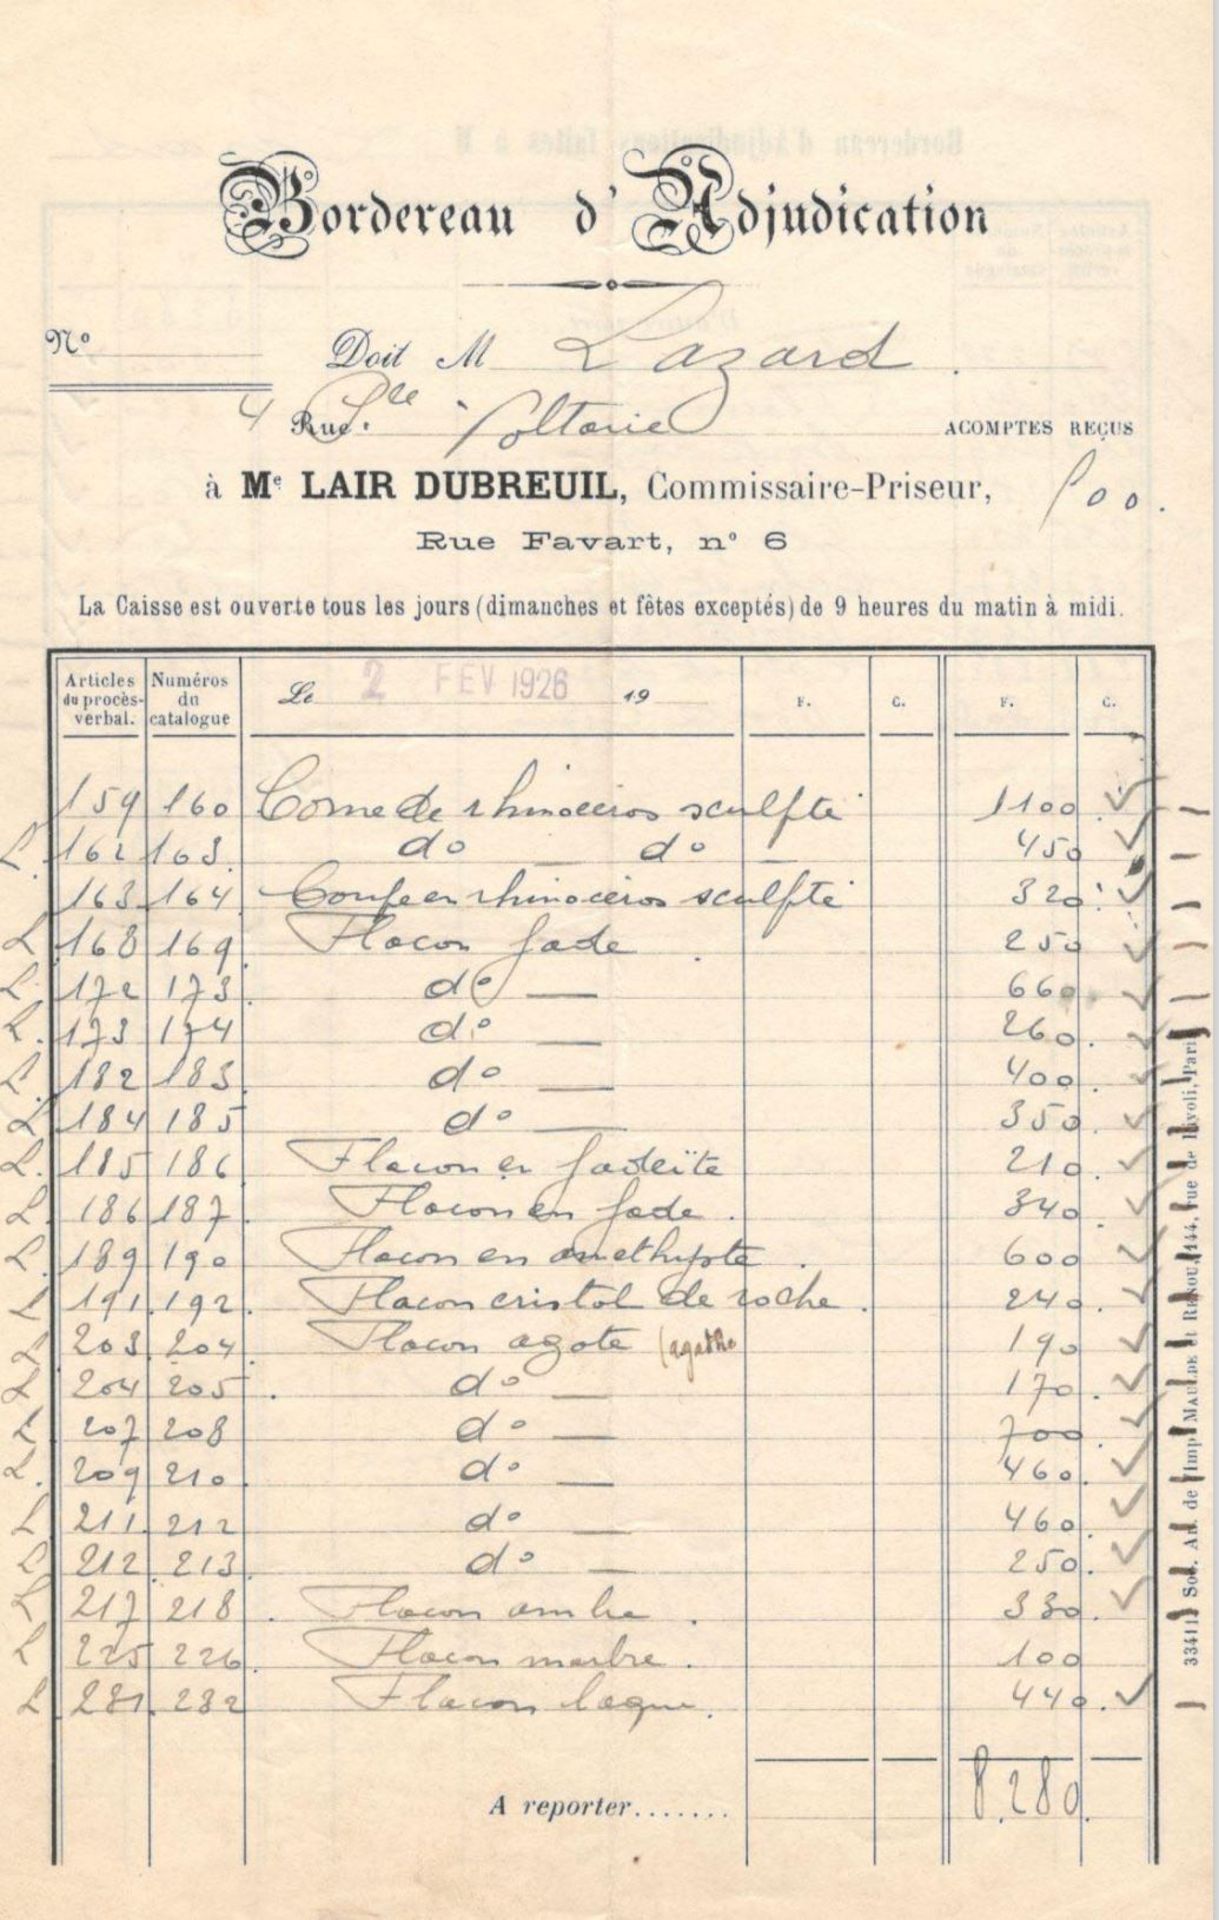 Bordereau d'Adjudication
Nº
Doit M Lazard.
4 Rue.
ACOMPTES REÇUS
à Mᵉ LAIR DUBREUIL, Commissaire-Priseur,
Rue Favart, nº 6
La Caisse est ouverte tous les jours (dimanches et fêtes exceptés) de 9 heures du matin à midi.
Articles du procès-verbal. Numéros du catalogue Le 2 FEV 1926 19 F. C. F. C.
159 160 Corne de rhinoceros sculpté 1100
L. 162 163. dº — dº — 450
163 164 Coupe en rhinoceros sculpté 320
L 168 169. Flacon jade. 250
L. 172 173. dº — 660
L. 173 174 dº — 260.
L. 182 183. dº — 400.
L 184 185 dº — 350.
L. 185 186 Flacon en jadeïte 210.
L. 186 187. Flacon en jade. 340.
L. 189 190 Flacon en amethyste. 600
L 191. 192. Flacon cristal de roche. 240.
L 203. 204. Flacon agate (agathe 190
L 204 205. dº — 170.
L 207 208 dº — 700.
L. 209 210. dº — 460.
L 211. 212 dº — 460.
L 212. 213. dº — 250.
L 217 218. Flacon ambre. 330.
L 225 226. Flacon marbre. 100
L 231. 232 Flacon laque. 440.
A reporter....... 8.280.
33411 Soc. An. de l'Imp. MAULDE et RENOU, 144, rue de Rivoli, Paris